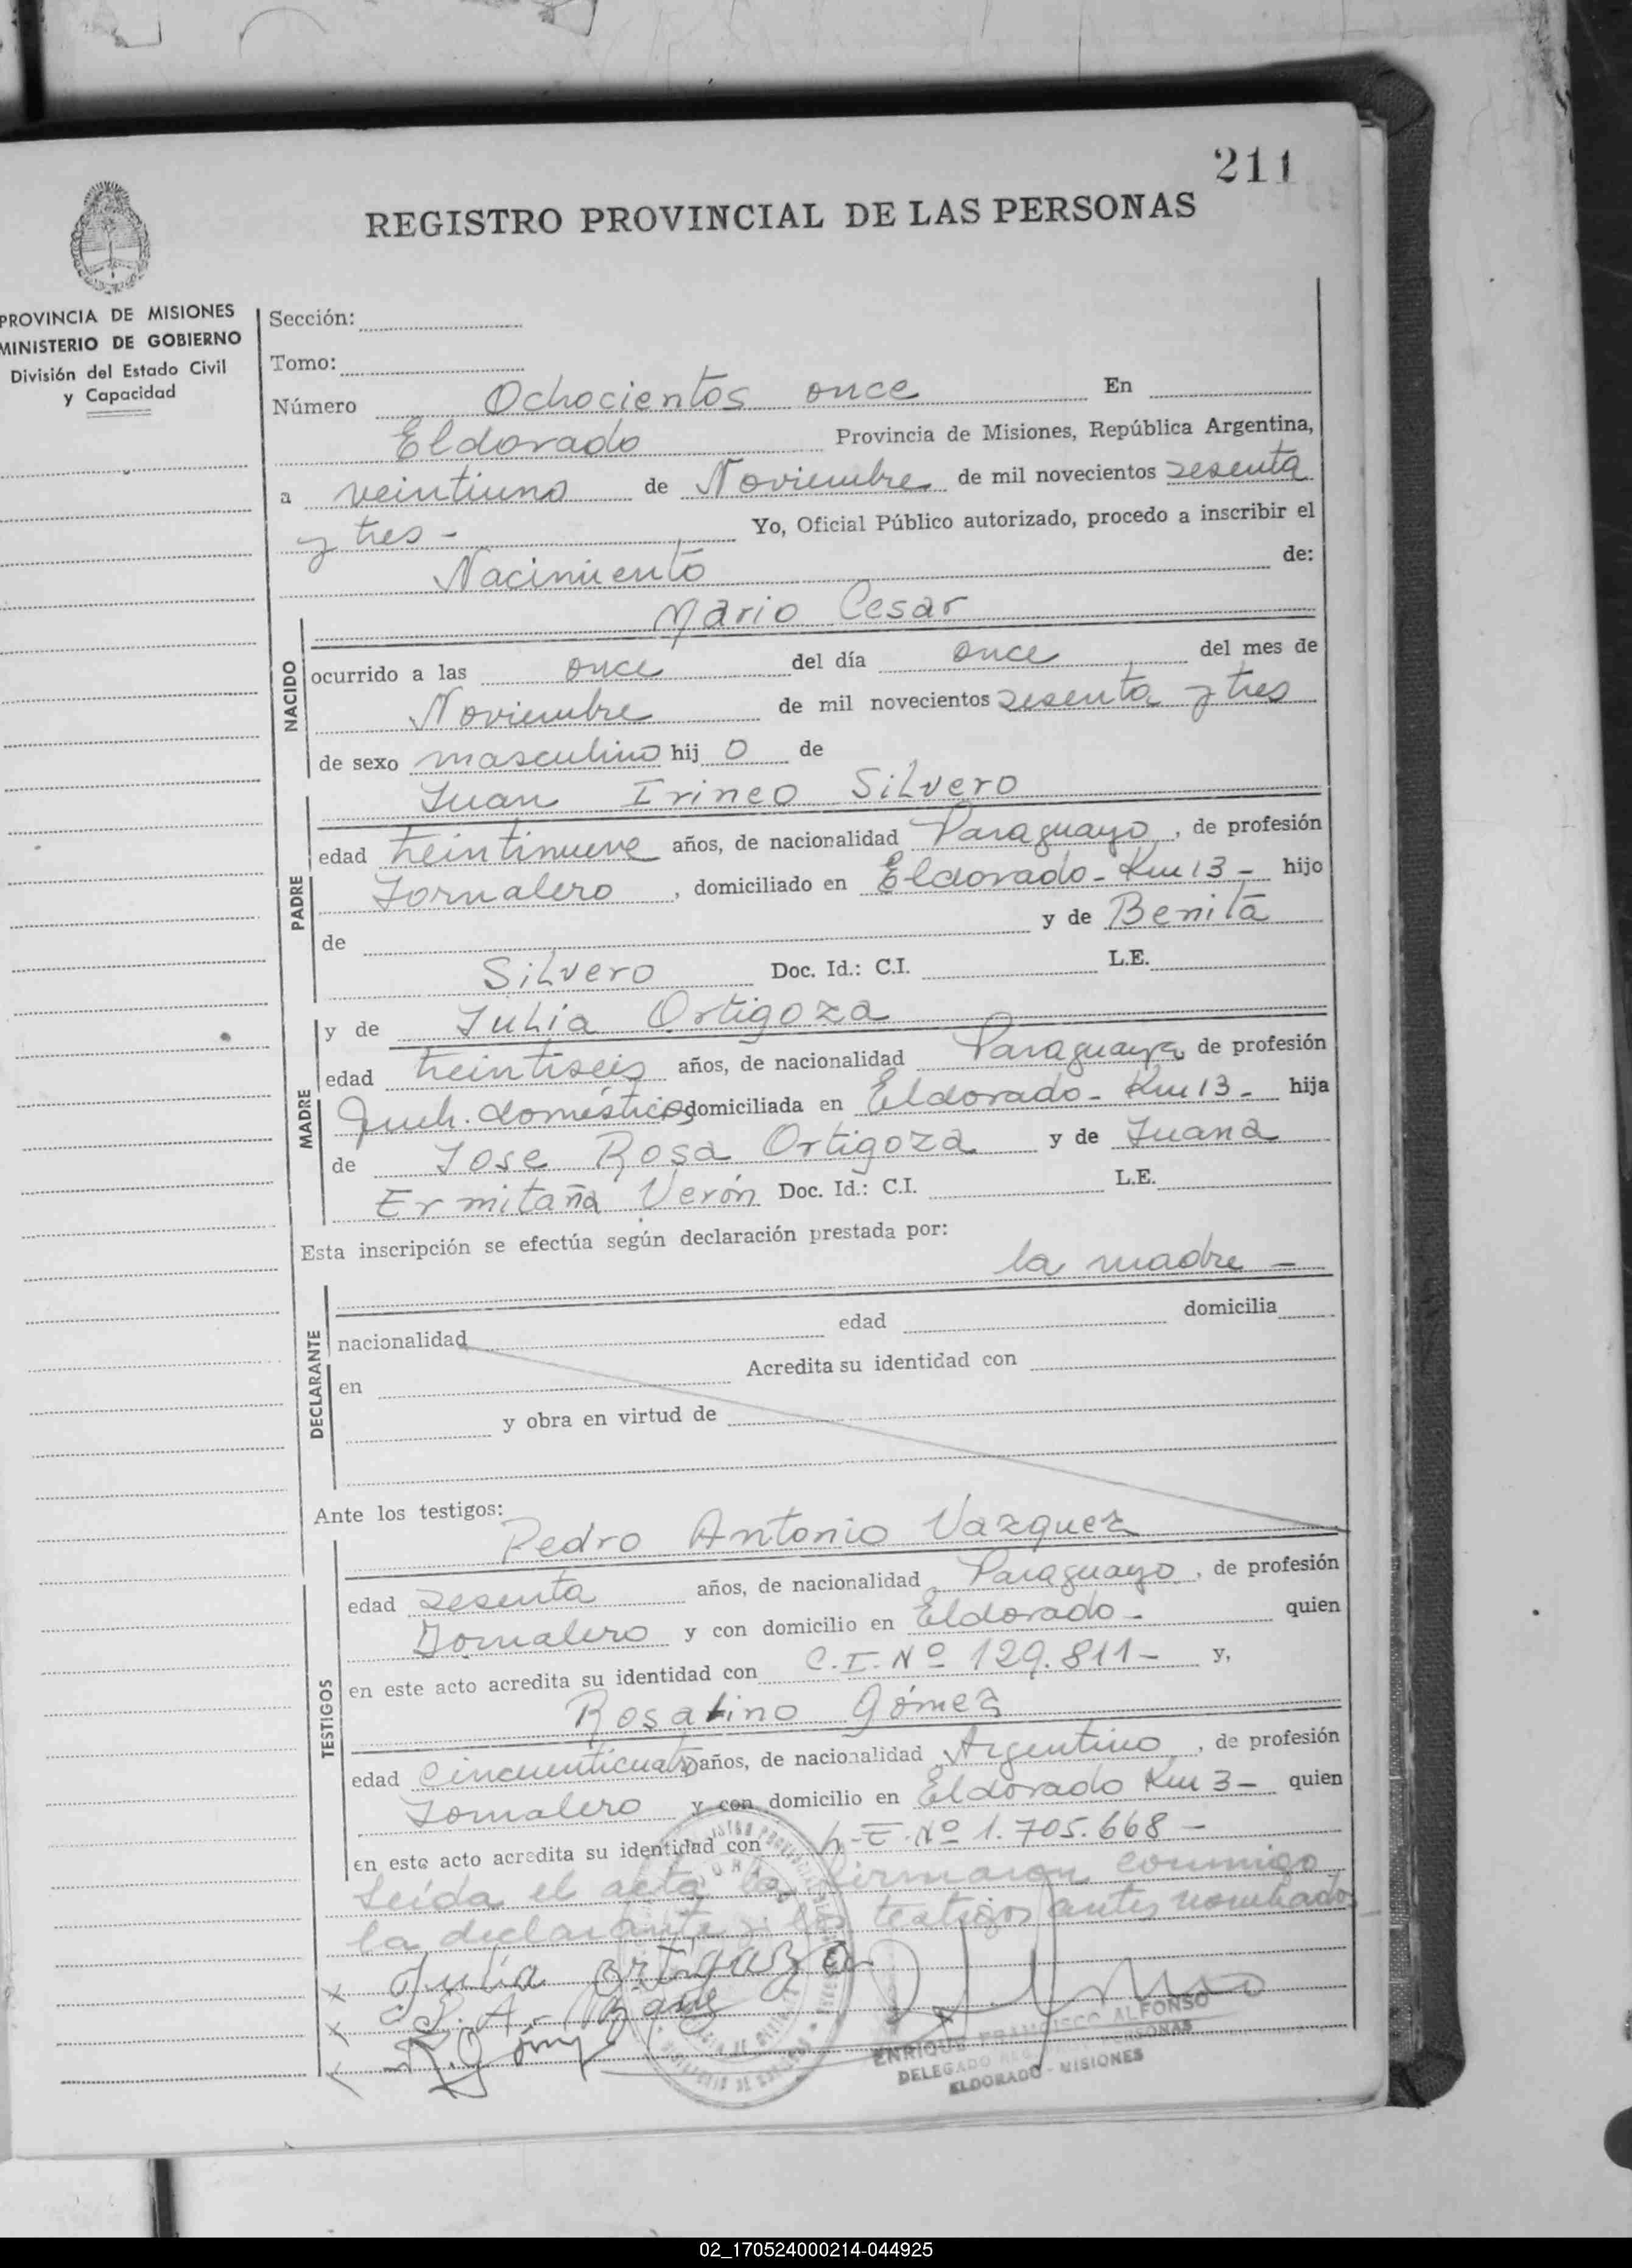 211
REGISTRO PROVINCIAL DE LAS PERSONAS
PROVINCIA DE MISIONES
MINISTERIO DE GOBIERNO
División del Estado Civil
y Capacidad
Sección:
Tomo:
Número Ochocientos once En
Eldorado Provincia de Misiones, República Argentina,
a veintiuno de Noviembre de mil novecientos sesenta
y tres - Yo, Oficial Público autorizado, procedo a inscribir el
Nacimiento de:
Mario Cesar
NACIDO
ocurrido a las once del día once del mes de
Noviembre de mil novecientos sesenta y tres
de sexo masculino hij o de
Juan Irineo Silvero
PADRE
edad treintinueve años, de nacionalidad Paraguayo, de profesión
Jornalero, domiciliado en Eldorado - Km 13 - hijo
de y de Benita
Silvero Doc. Id.: C.I. L.E.
MADRE
y de Julia Ortigoza
edad treintiseis años, de nacionalidad Paraguaya, de profesión
domésticos domiciliada en Eldorado - Km 13 - hija
de Jose Rosa Ortigoza y de Juana
Ermitaña Verón Doc. Id.: C.I. L.E.
Esta inscripción se efectúa según declaración prestada por:
la madre -
DECLARANTE
nacionalidad edad domicilia
en Acredita su identidad con
y obra en virtud de
Ante los testigos:
Pedro Antonio Vazquez
TESTIGOS
edad sesenta años, de nacionalidad Paraguayo, de profesión
Jornalero y con domicilio en Eldorado - quien
en este acto acredita su identidad con C.I. Nº 129.811 - y,
Rosalino Gómez
edad cincuenticuatro años, de nacionalidad Argentino, de profesión
Jornalero y con domicilio en Eldorado Km 3 - quien
en este acto acredita su identidad con Nº 1.705.668 -
Leída el acta la firmaron conmigo
la declarante y los testigos antes nombrados -
Julia
R. Gómez
ENRIQUE FRANCISCO ALFONSO
DELEGADO REG. PERSONAS
ELDORADO - MISIONES
02_170524000214-044925